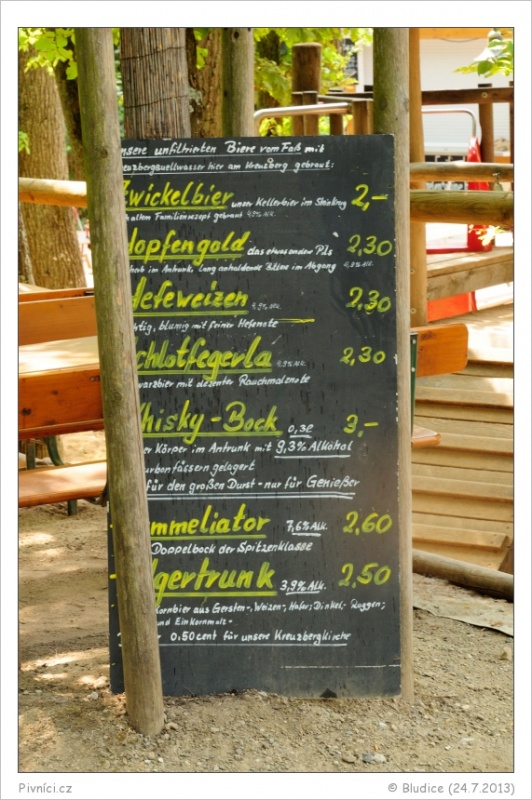 nsere unfiltrierten Biere vom Faß mit
euzbergquellwasser hier am Kreuzberg gebraut:
Zwickelbier unser Kellerbier im Steinkrug 2,-
haltem Familienrezept gebraut 4,9% Alk.
Hopfengold das etwas andere Pils 2,30
herb im Antrunk, lang anhaltende Bittere im Abgang 4,9% Alk.
Hefeweizen 4,9% Alk. 2,30
htig, blumig mit feiner Hefenote
chlotfegerla 4,9% Alk. 2,30
warzbier mit dezenter Rauchmalznote
hisky-Bock 0,3l 3,-
er Körper im Antrunk mit 9,3% Alkohol
urbonfässern gelagert
für den großen Durst - nur für Genießer
mmeliator 7,6% Alk. 2,60
Doppelbock der Spitzenklasse
gertrunk 3,9% Alk. 2,50
kornbier aus Gersten-, Weizen-, Hafer, Dinkel-, Roggen,
und Einkornmalz-
0.50cent für unsere Kreuzbergkirche
Pivníci.cz
© Bludice (24.7.2013)